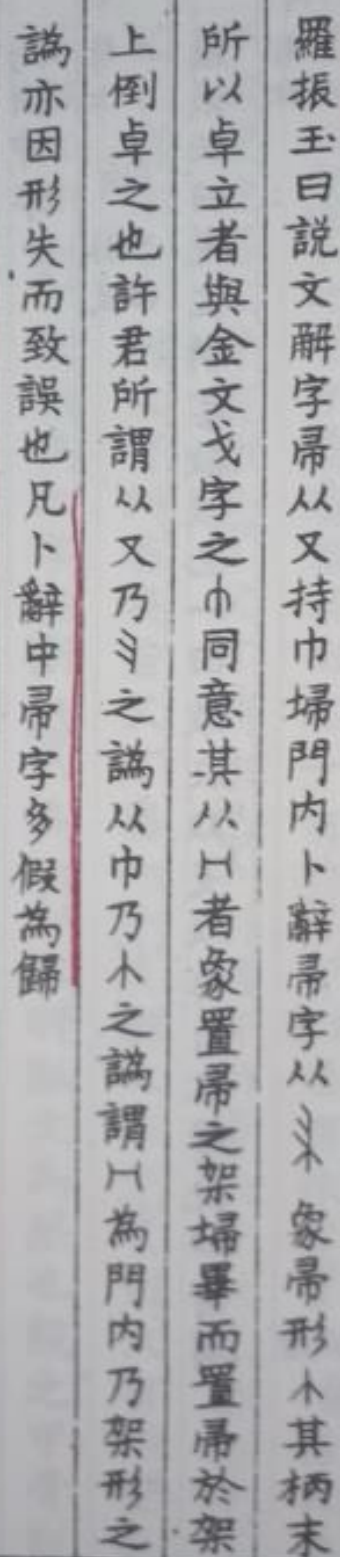 羅振玉曰説文解字帚从又持巾埽門内卜辭帚字从象帚形其柄末
所以卓立者與金文戈字之同意其从者象置帚之架埽畢而置帚於架
上倒卓之也許君所謂从又乃之譌从巾乃之譌謂為門内乃架形之
譌亦因形失而致誤也凡卜辭中帚字多假為歸